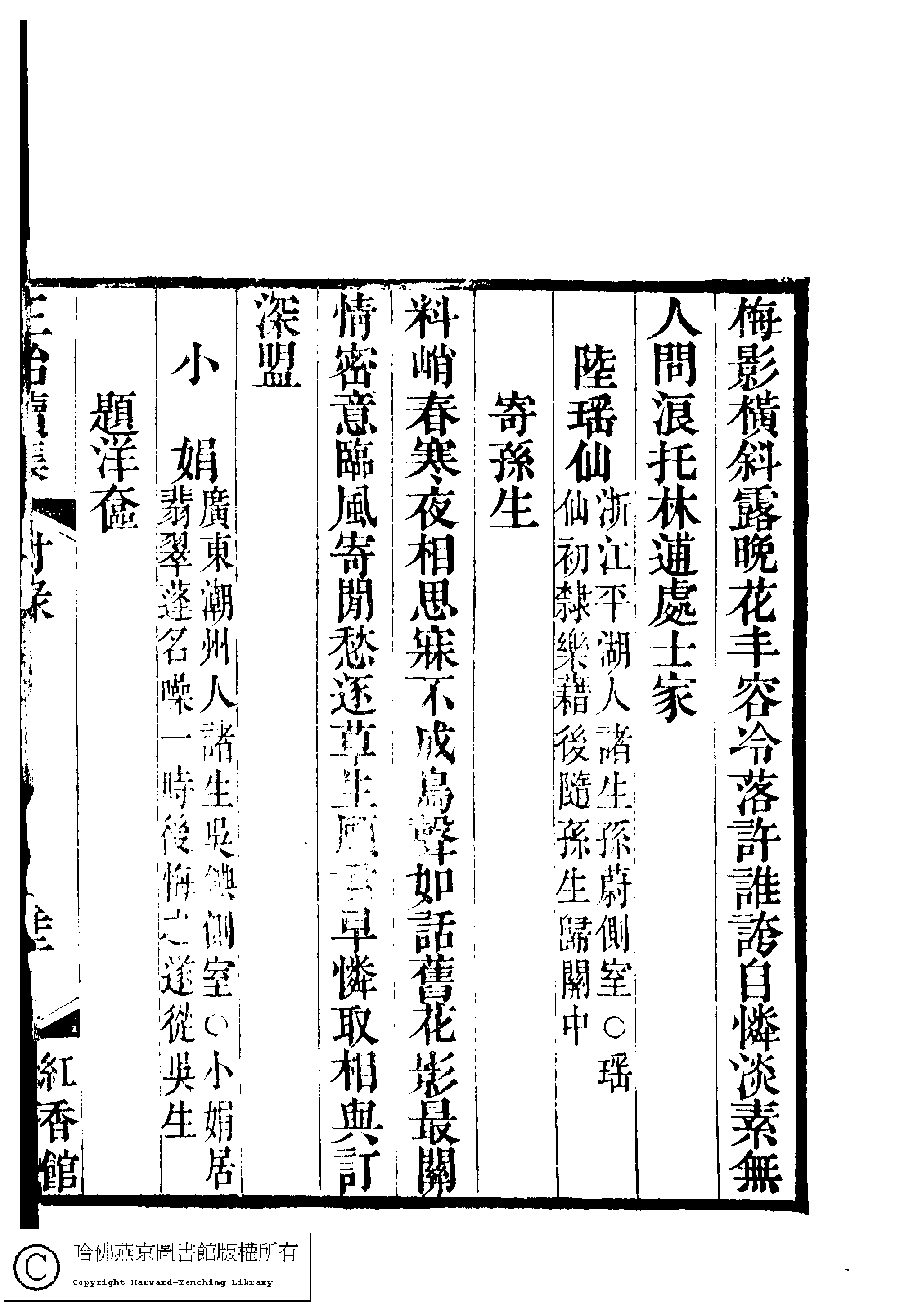 梅影橫斜露晚花丰容冷落許誰誇自憐淡素無
人問浪托林逋處士家
陸瑶仙
浙江平湖人諸生孫蔚側室○瑶
仙初隸樂藉後隨孫生歸關中
寄孫生
料峭春寒夜相思寐不成鳥聲如話舊花影最關
情密意臨風寄閒愁逐草生早憐取相與訂
深盟
小娟
廣東潮州人諸生吳側室○小娟居
翡翠蓬名噪一時後悔之遂從吳生
題洋奩
附錄
紅香館
哈佛燕京圖書館版權所有
Copyright Harvard-Yenching Library